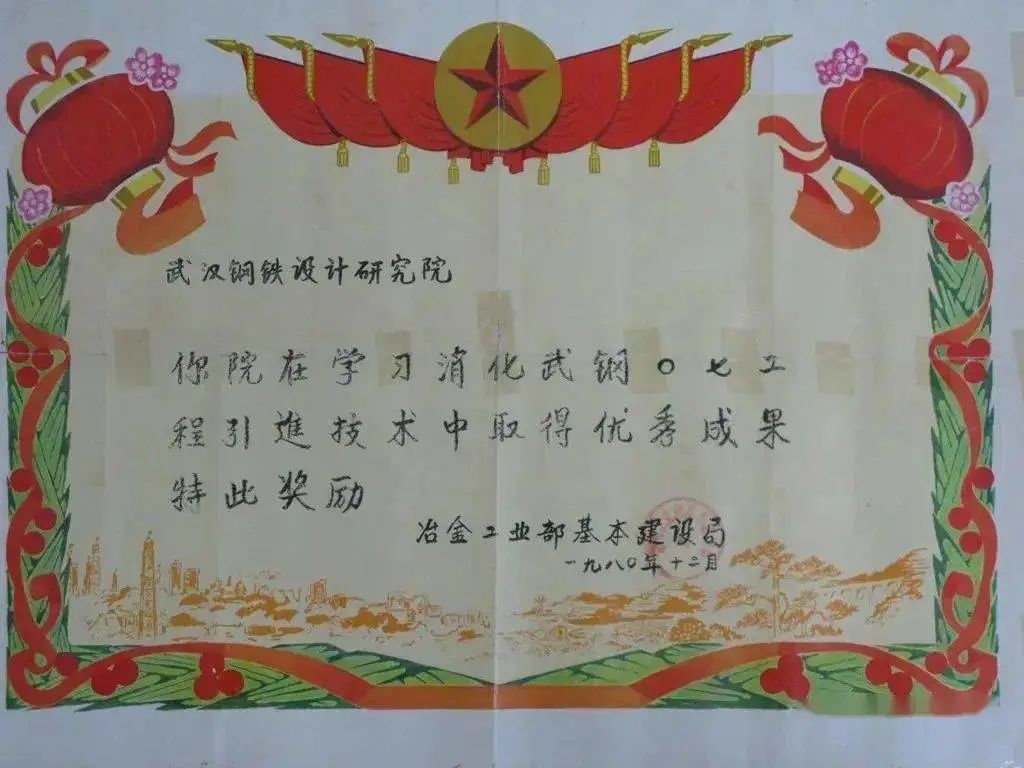 武汉钢铁设计研究院
你院在学习消化武钢〇七工
程引進技术中取得优秀成果
特此奖励
冶金工业部基本建设局
一九八〇年十二月